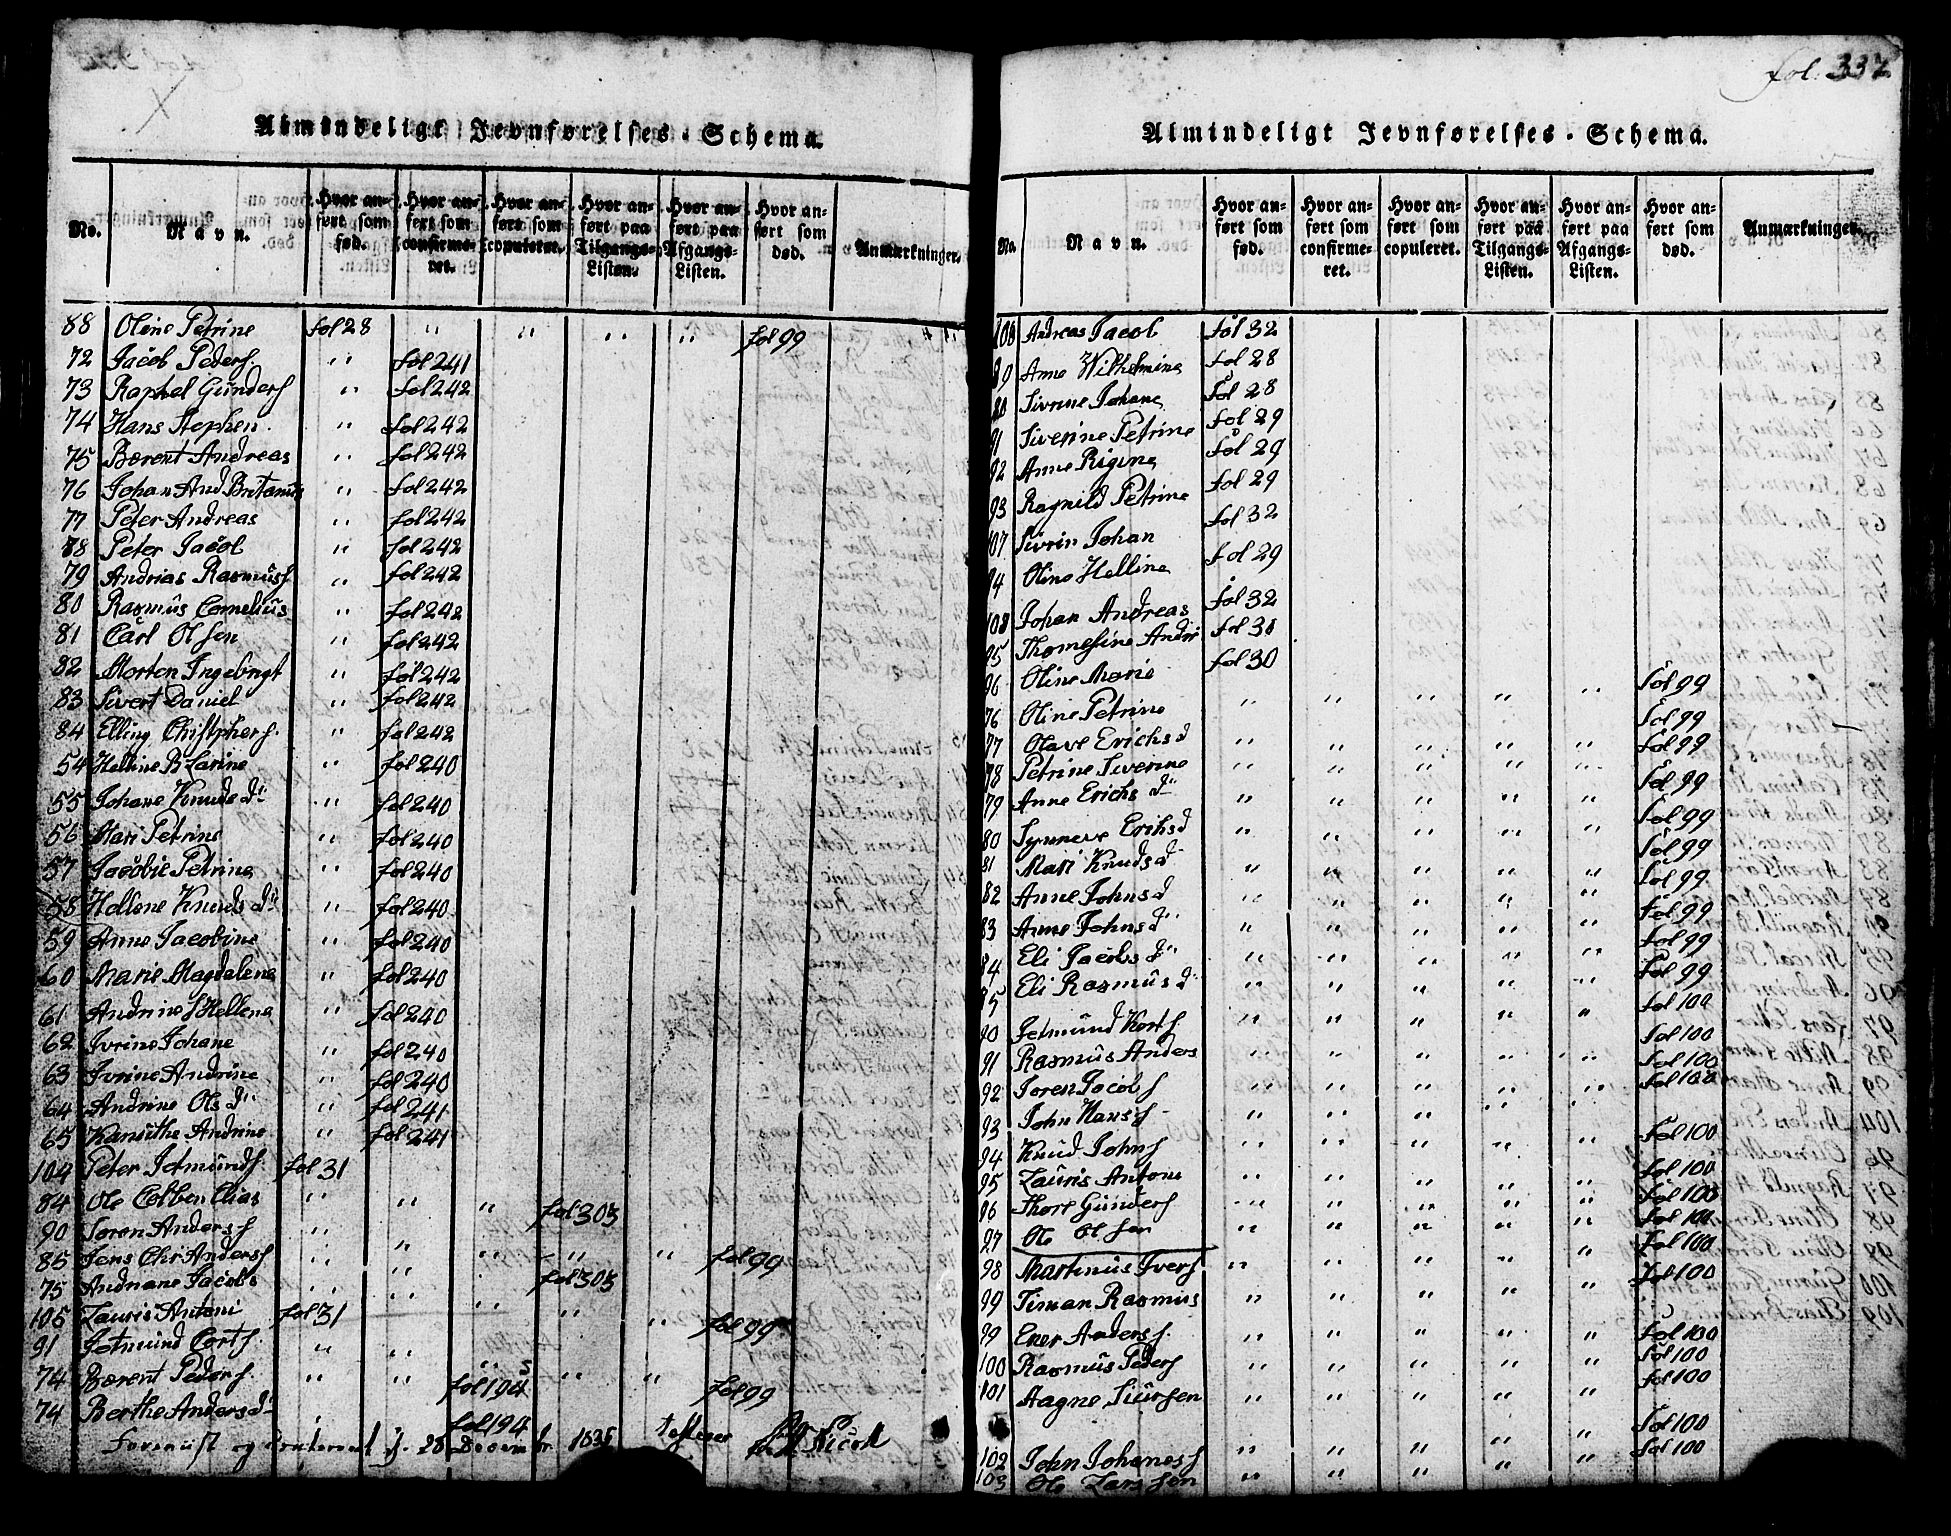 fol. 332
Almindeligt Jevnførelses-Schema.
No. Navn. Hvor anført som fød. Hvor anført som confirmeret. Hvor anført som copuleret. Hvor anført paa Tilgangs-Listen. Hvor anført paa Afgangs-Listen. Hvor anført som død. Anmærkninger.
88 Oline Petrine fol 28 " " " " fol 99
72 Jacob Peders. " fol 241
73 Raphel Gunders " fol 242
74 Hans Stephen. " fol 242
75 Bærent Andreas " fol 242
76 Johan And Britanius " fol 242
77 Peter Andreas " fol 242
78 Peter Jacob " fol 242
79 Andrias Rasmus " fol 242
80 Rasmus Cornelius " fol 242
81 Carl Olsen " fol 242
82 Morten Ingebrigt " fol 242
83 Sivert Daniel " fol 242
84 Elling Christphers. " fol 242
54 Helline B Larine " fol 240
55 Johane Knuds d: " fol 240
56 Mari Petrine " fol 240
57 Jacobie Petrine " fol 240
58 Hellene Knuds d: " fol 240
59 Anne Jacobine " fol 240
60 Marie Magdalena " fol 240
61 Andrine S Hellena " fol 240
62 Ivrine Johane " fol 240
63 Ivrine Andrine " fol 240
64 Andrine Ols d: " fol 241
65 Andrine " fol 241
104 Peter Jetmunds. fol 31
84 Ole Colben Elias " " " fol 303
90 Søren Anders " " " " " fol 99
85 Jens Chr Anders " " fol 303
75 Andriane Jacobs " " " " " fol 99
105 Lauris Antoni fol 31
91 Jetmund Corts. " " " " " fol 99
74 Bærent Peders. " " fol 195
74 Berthe Anders d: " fol 194
28 December 1835

Almindeligt Jevnførelses-Schema.
No. Navn. Hvor anført som fød. Hvor anført som confirmeret. Hvor anført som copuleret. Hvor anført paa Tilgangs-Listen. Hvor anført paa Afgangs-Listen. Hvor anført som død. Anmærkninger.
108 Andreas Jacob fol 32
89 Anne Wilhelmine fol 28
Sivrine Johane fol 28
91 Siverine Petrine fol 29
92 Anne Rigine fol 29
93 Ragnild Petrine fol 29
107 Sivrin Johan fol 32
94 Oline Helline fol 29
108 Johan Andreas fol 32
95 Thomesine Andri fol 30
96 Oline Marie fol 30
76 Oline Petrine " " " " " fol 99
77 Olave Erichs d " " " " " fol 99
78 Petrine Siverine " " " " " fol 99
79 Anne Erichs d: " " " " " fol 99
80 Synneve Erichs d " " " " " fol 99
81 Mari Knuds d: " " " " " fol 99
82 Anne Johns d " " " " " fol 99
83 Anne Johns d: " " " " " fol 99
84 Eli Jacobs d: " " " " " fol 99
85 Eli Rasmus d: " " " " " fol 99
90 Jetmund Korts. " " " " " fol 100
91 Rasmus Anders " " " " " fol 100
92 Søren Jacobs " " " " " fol 100
93 John Hans " " " " " fol 100
94 Knud Johns " " " " " fol 100
95 Lauris Antoni " " " " " fol 100
96 Thore Gunders " " " " " fol 100
97 Ole Olsen " " " " " fol 100
98 Martinus Ivers " " " " " fol 100
99 Timan Rasmus " " " " " fol 100
99 Ener Anders. " " " " " fol 100
100 Rasmus Peders " " " " " fol 100
101 Aagne Siursen " " " " " fol 100
102 John Johanes " " " " " fol 100
103 Ole Larssen " " " " " fol 100